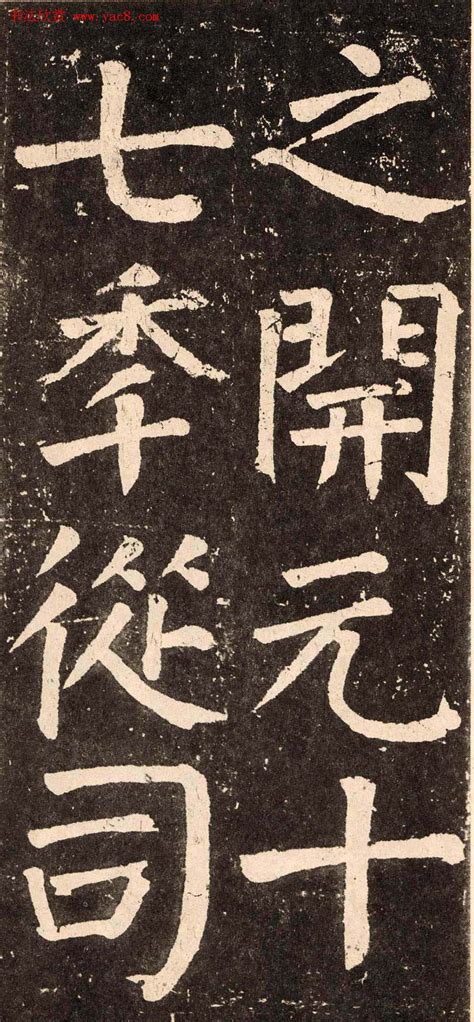 www.yac8.com
之開元十
七秊從司